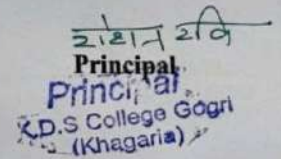 रोशन रवि
Principal
Principal
K.D.S College Gogri
(Khagaria)